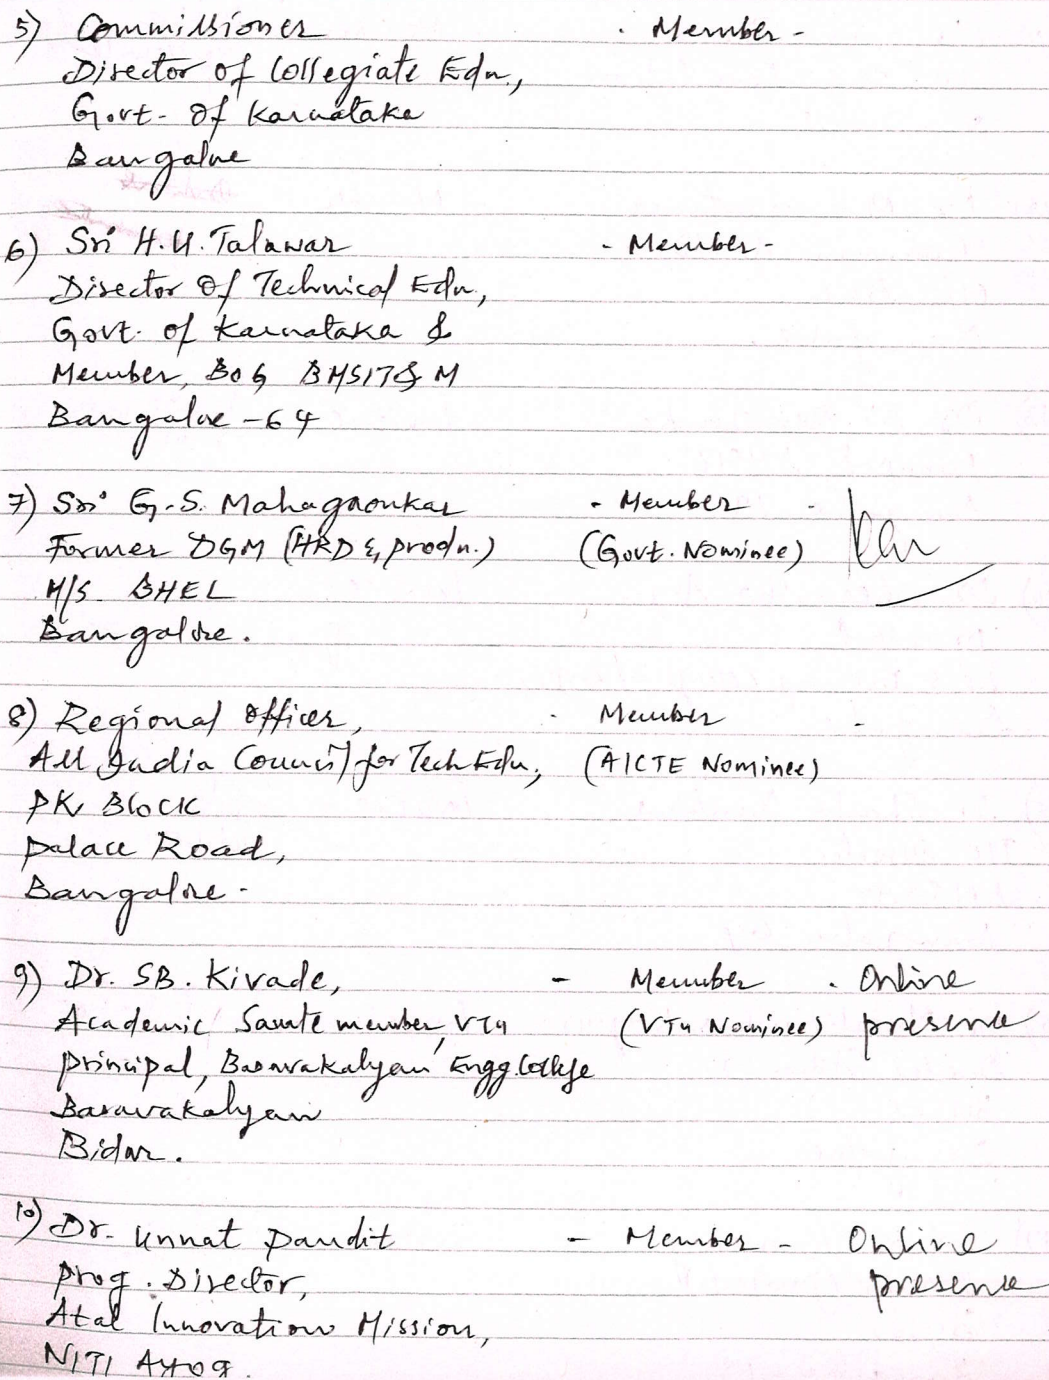 5) Commissioner - Member -
Director of Collegiate Edn.,
Govt. Of Karnataka
Bangalore
6) Sri H.U. Talawar - Member -
Director Of Technical Edn,
Govt. of Karnataka &
Member, BOG BMSIT&M
Bangalore - 64
7) Sri G.S. Mahagaonkar - Member -
Former DGM (HRD & prodn.) (Govt. Nominee)
M/S. BHEL
Bangalore.
8) Regional Officer, - Member -
All India Council for Tech Edn, (AICTE Nominee)
PK Block
Palace Road,
Bangalore -
9) Dr. SB. Kivade, - Member - Online
Academic Senate member, VTU (VTU Nominee) presence
principal, Basavakalyan Engg. College
Basavakalyan
Bidar.
10) Dr. Unnat Pandit - Member - Online
prog. Director, presence
Atal Innovation Mission,
NITI Ayog.